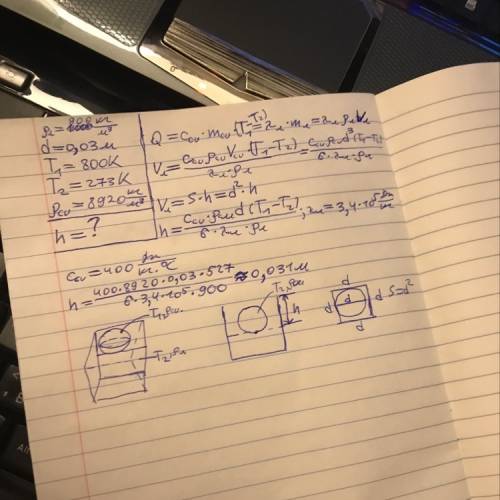 ρл = 900 кг/м³
d = 0,03 м
T₁ = 800K
T₂ = 273K
ρcu = 8920 кг/м³
h = ?
Q = Ccu · mcu · (T₁ - T₂) = λл · mл = λл ρл Vл
Vл = Ccu ρcu Vcu (T₁ - T₂) / λл · ρл = Ccu ρcu d³ (T₁ - T₂) / 6 · λл · ρл
Vл = S · h = d² · h
h = Ccu · ρcu d (T₁ - T₂) / 6 · λл · ρл ; λл = 3,4 · 10⁵ Дж/кг
Ccu = 400 Дж/кг · °C
h = 400 · 8920 · 0,03 · 527 / 6 · 3,4 · 10⁵ · 900 ≈ 0,031 м
T₁, ρcu
T₂, ρл
T₂, ρcu
h
d
d
d
d S = d²
d